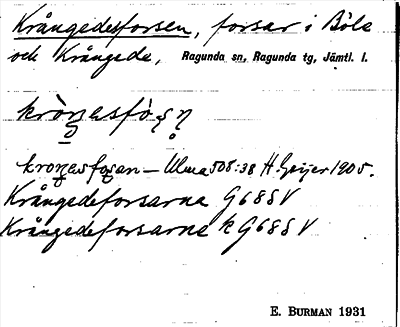 Krångedesforsen, forsar i Böle
och Krångede, Ragunda sn, Ragunda tg, Jämtl. l.
kroŋesfoṣan – Ulma 508:38 H. Geijer 1905.
Krångedeforsarna G68SV
Krångedeforsarne k G68SV
E. BURMAN 1931